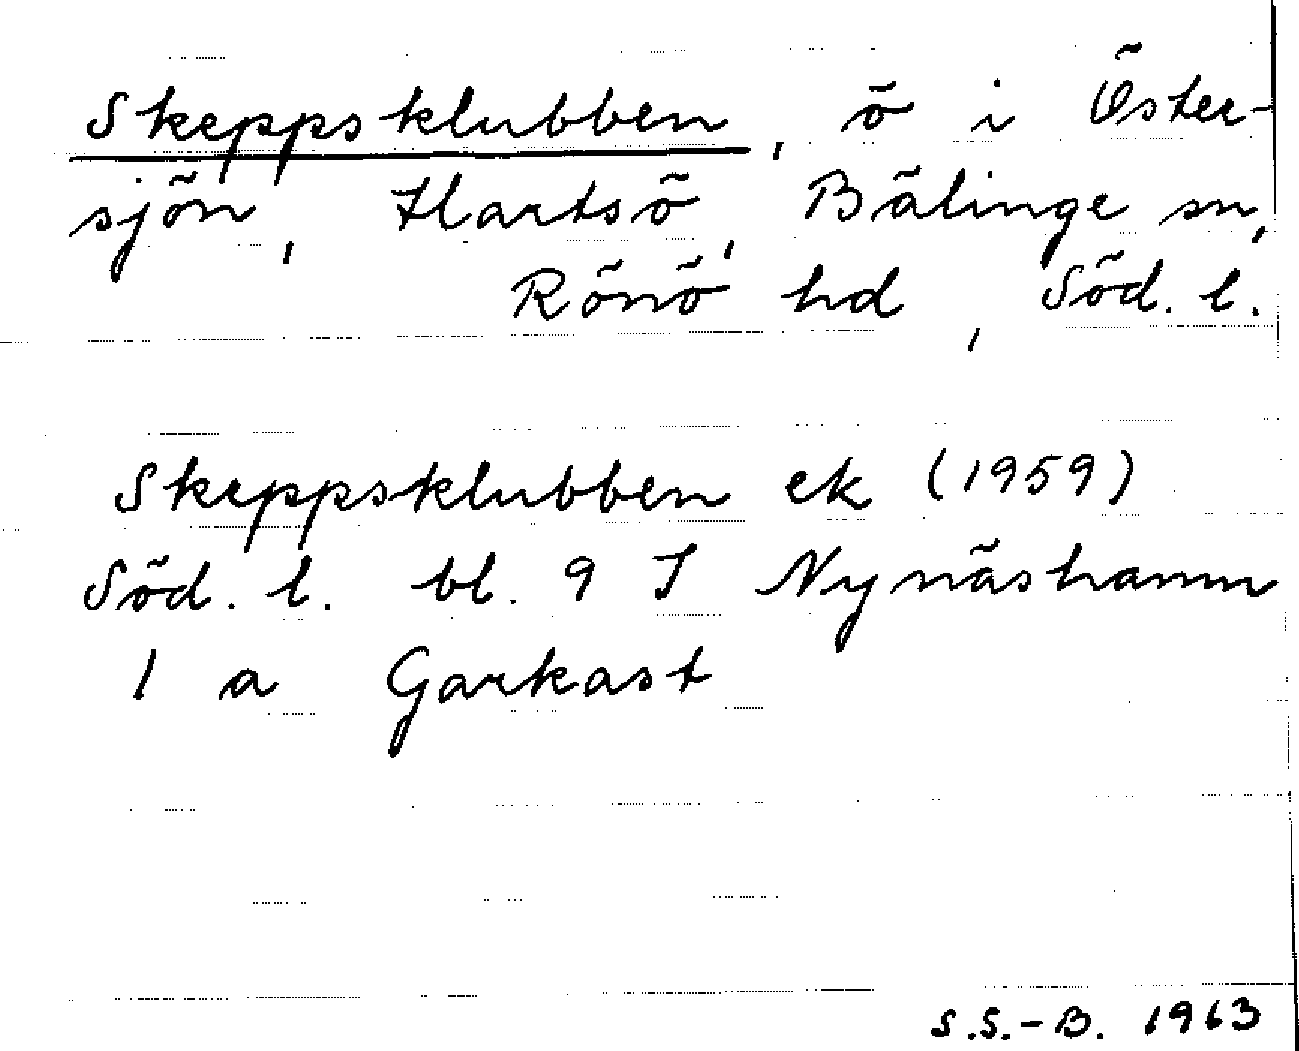 Skeppsklubben, ö i Öster-
sjön, Hartsö, Bälinge sn,
Rönö hd, Söd. l.
Skeppsklubben ek (1959)
Söd. l. bl. 9 I Nynäshamn
1 a Garkast
S.S.-B. 1963